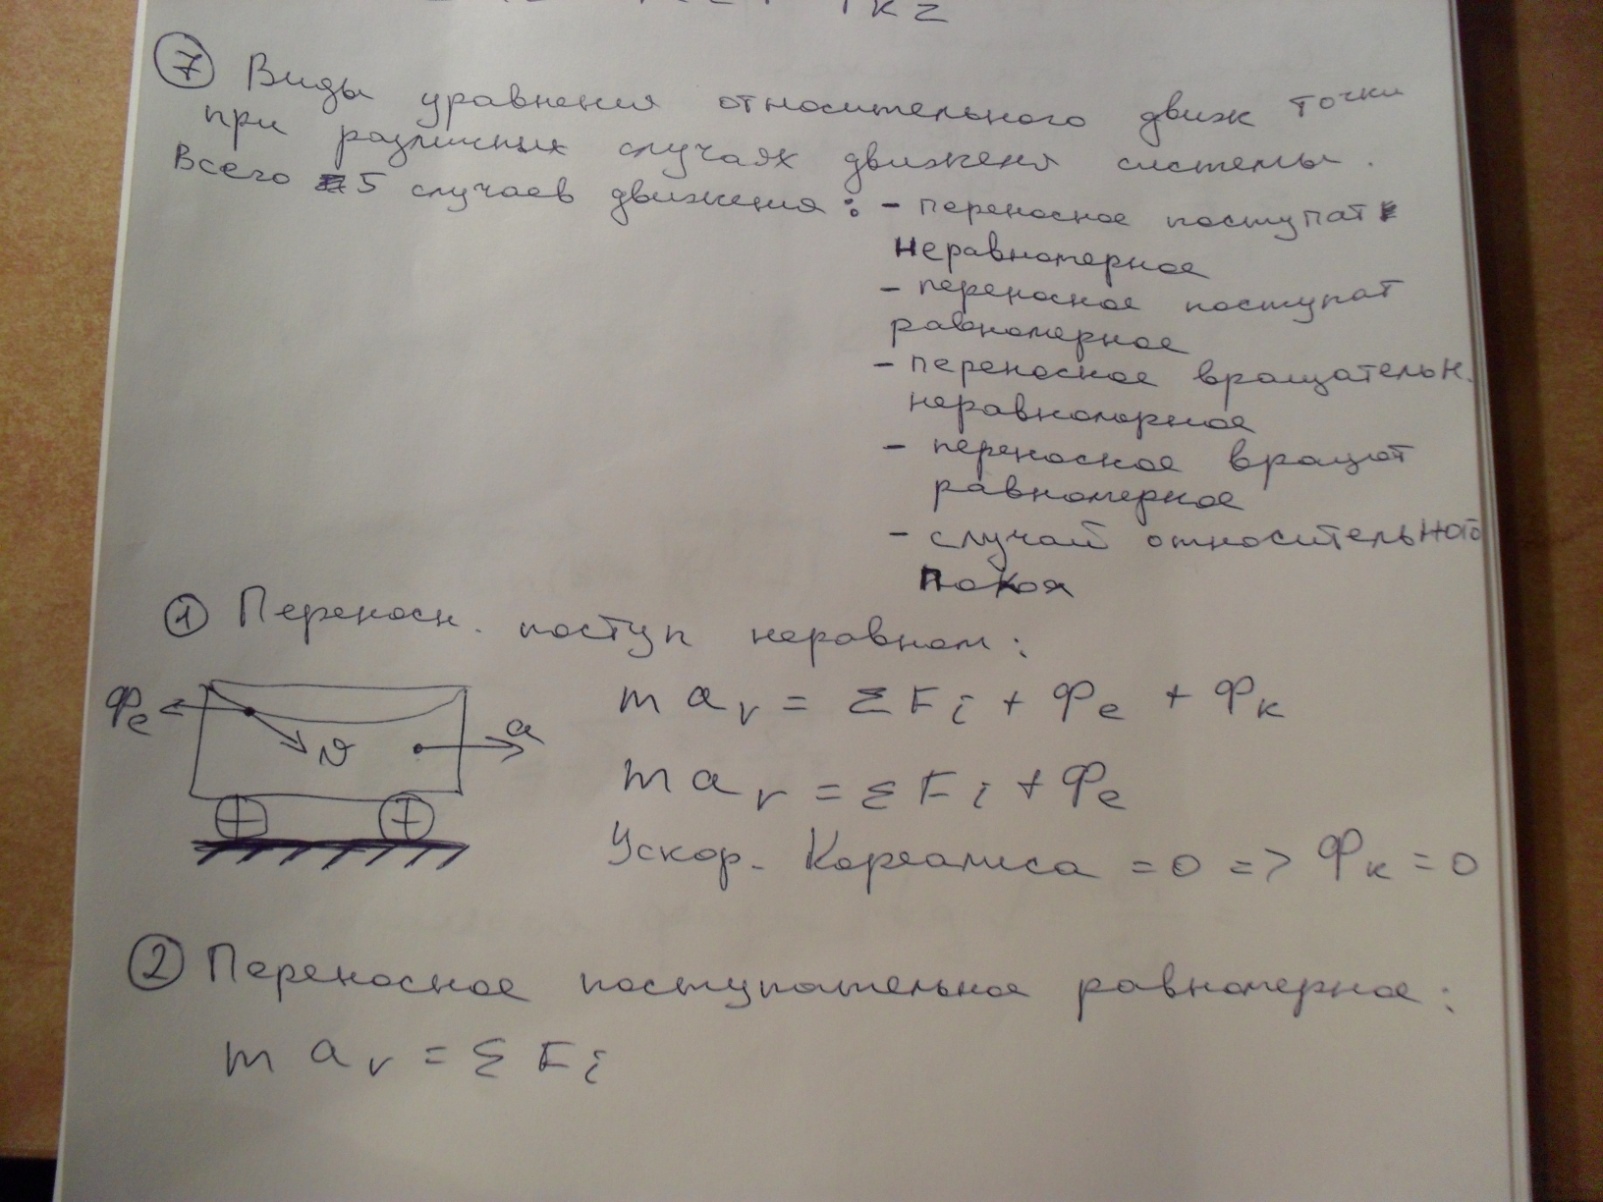 ⑦ Виды уравнения относительного движ точки
при различных случаях движения системы.
Всего 5 случаев движения: - переносное поступат
неравномерное
- переносное поступат
равномерное
- переносное вращательн.
неравномерное
- переносное вращат
равномерное
- случай относительного
покоя
① Переносн. поступ неравном:
m a r = Σ F i + Φe + Φк
Φe
v
a
m a r = Σ F i + Φe
Ускор. Кореолиса = 0 => Φк = 0
② Переносное поступательное равномерное:
m a r = Σ F i